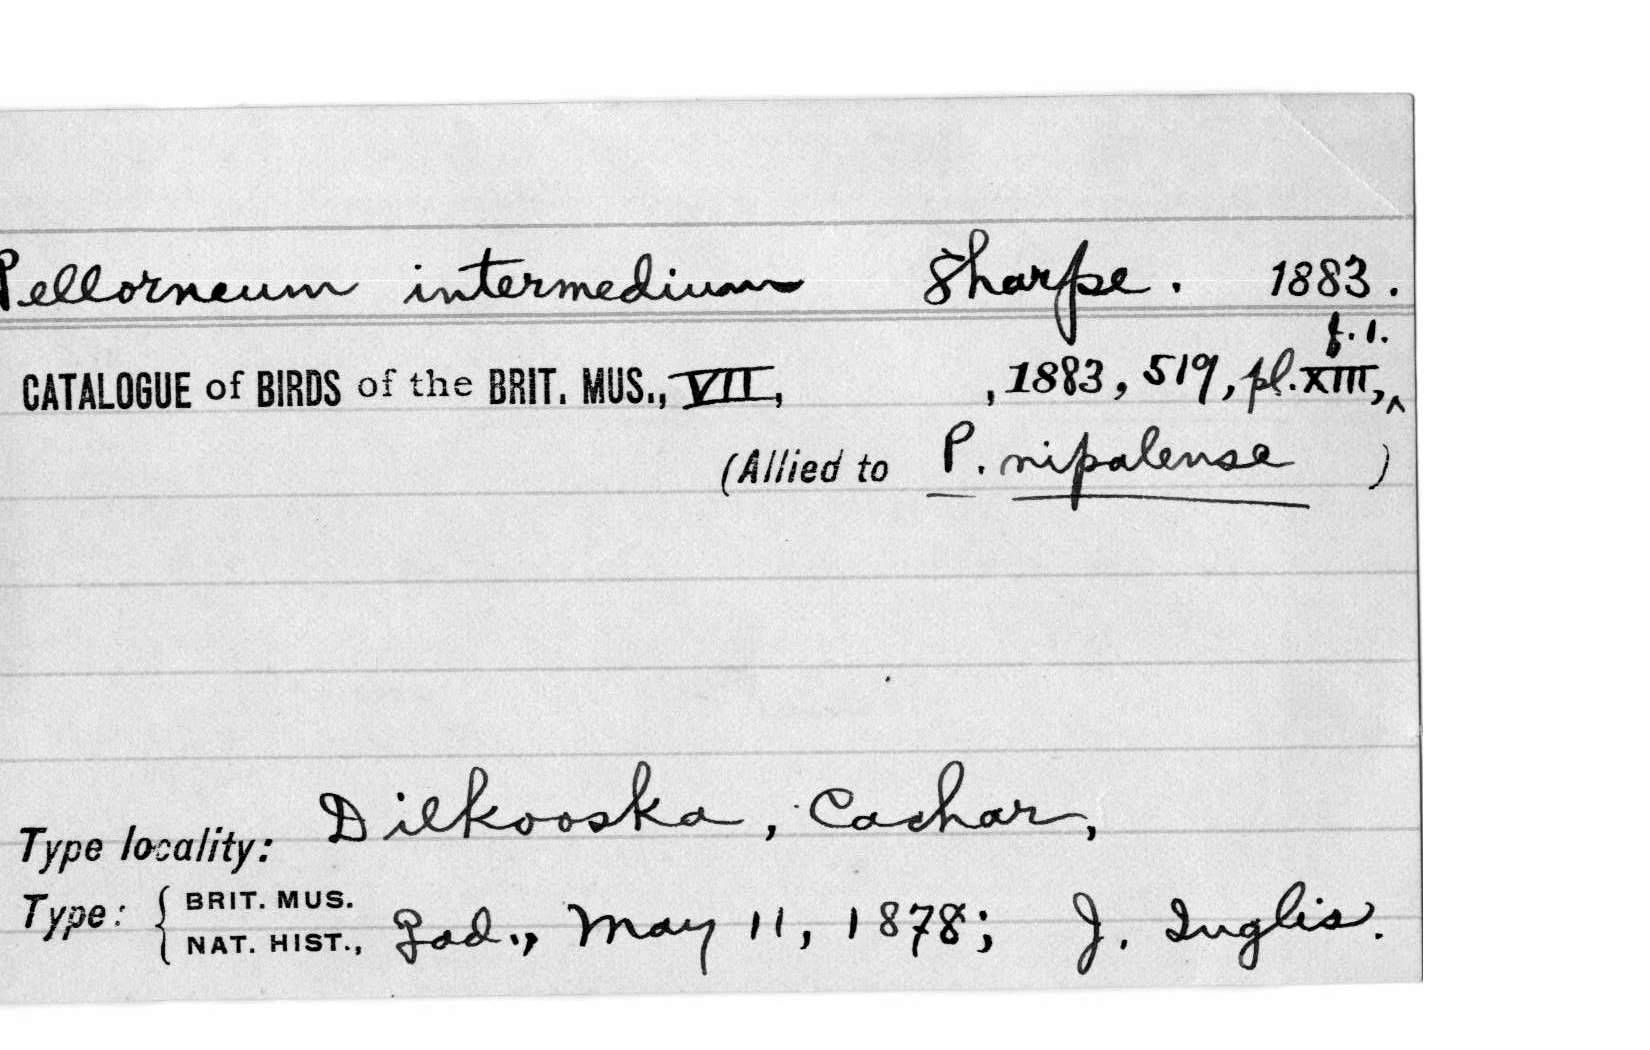 Pellorneum intermedium Sharpe. 1883.
CATALOGUE of BIRDS of the BRIT. MUS., VII, , 1883, 519, pl. XIII, ^ f. 1.
(Allied to P. nipalense )
Type locality: Dilkooska, Cachar,
Type: { BRIT. MUS. NAT. HIST., ad., May 11, 1878; J. Inglis.